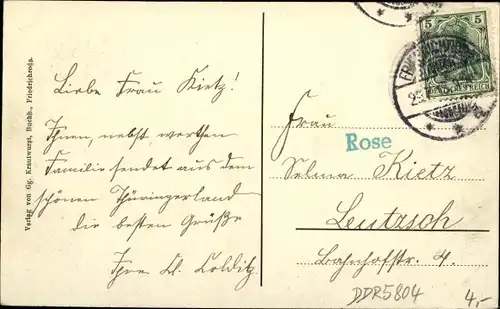 Verlag von Gg. Krautwurst, Buchh., Friedrichroda.
Liebe Frau Kietz!
Ihnen, nebst werthen
Familie sendet aus dem
schönen Thüringerland
die besten Grüße
Ihre Cl. Colditz.
5 5
DEUTSCHES REICH
Frau
Rose
Selma Kietz
Leutzsch
Bahnhofstr. 4.
DDR5804
4,-